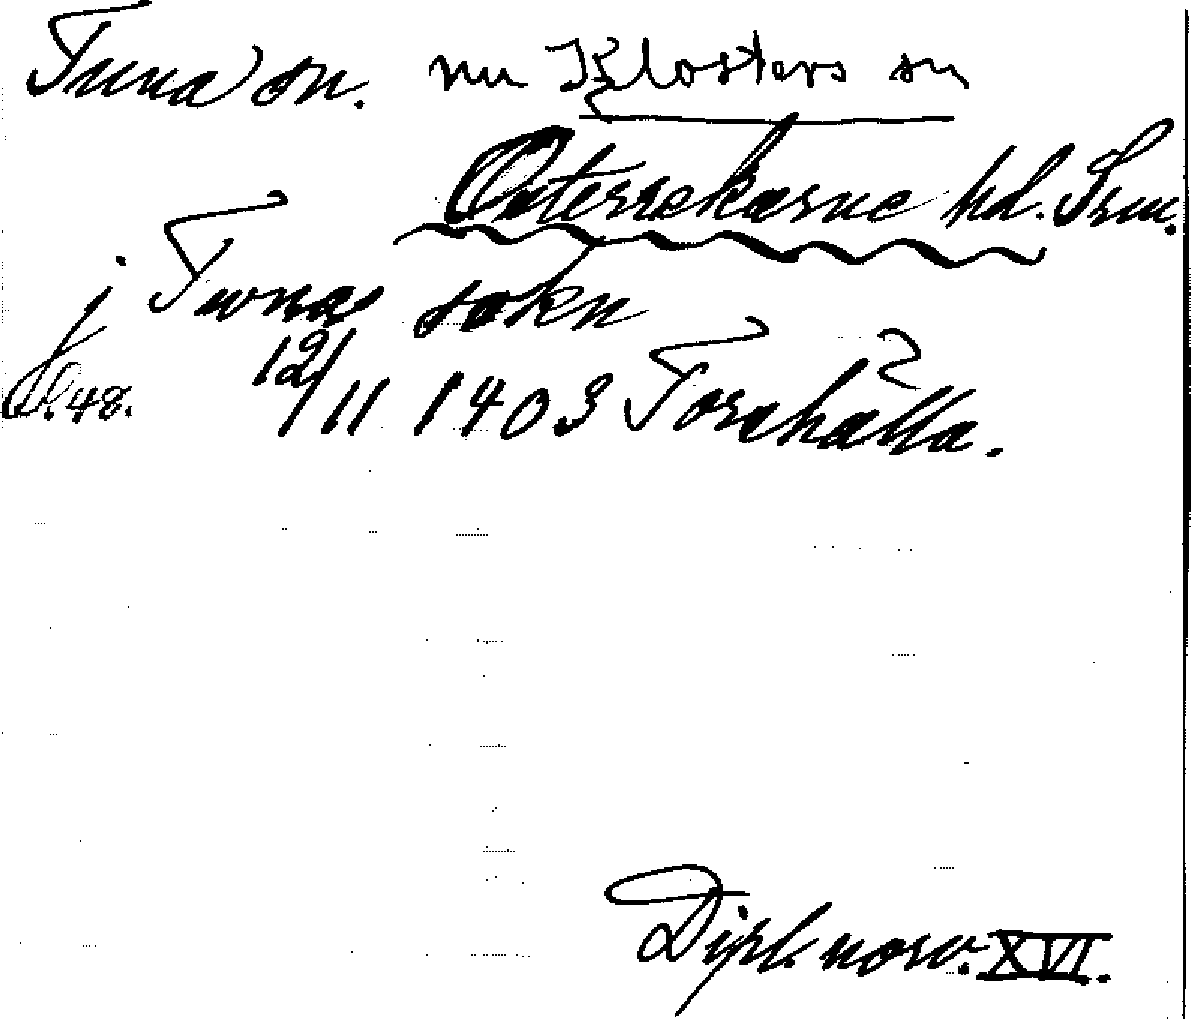 Tuna sn. nu Klosters sn
Österrekarne hd. Srm.
j Twnæ sokn
s. 48. 12/11 1403 Torshälla.
Dipl. norv. XVI.